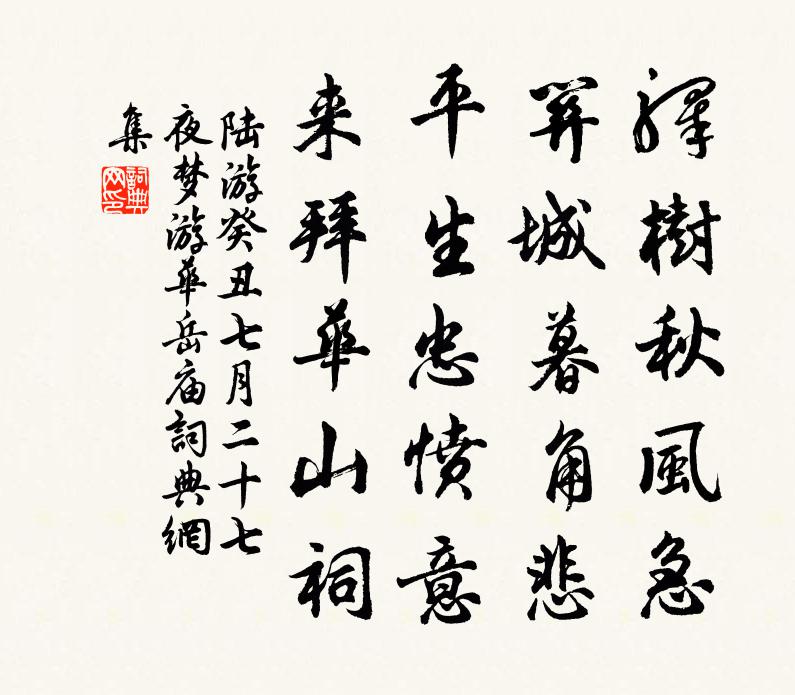 驛樹秋風急
關城暮角悲
平生忠憤意
来拜華山祠
陆游癸丑七月二十七
夜梦游華岳庙詞典網
集
詞典
网印